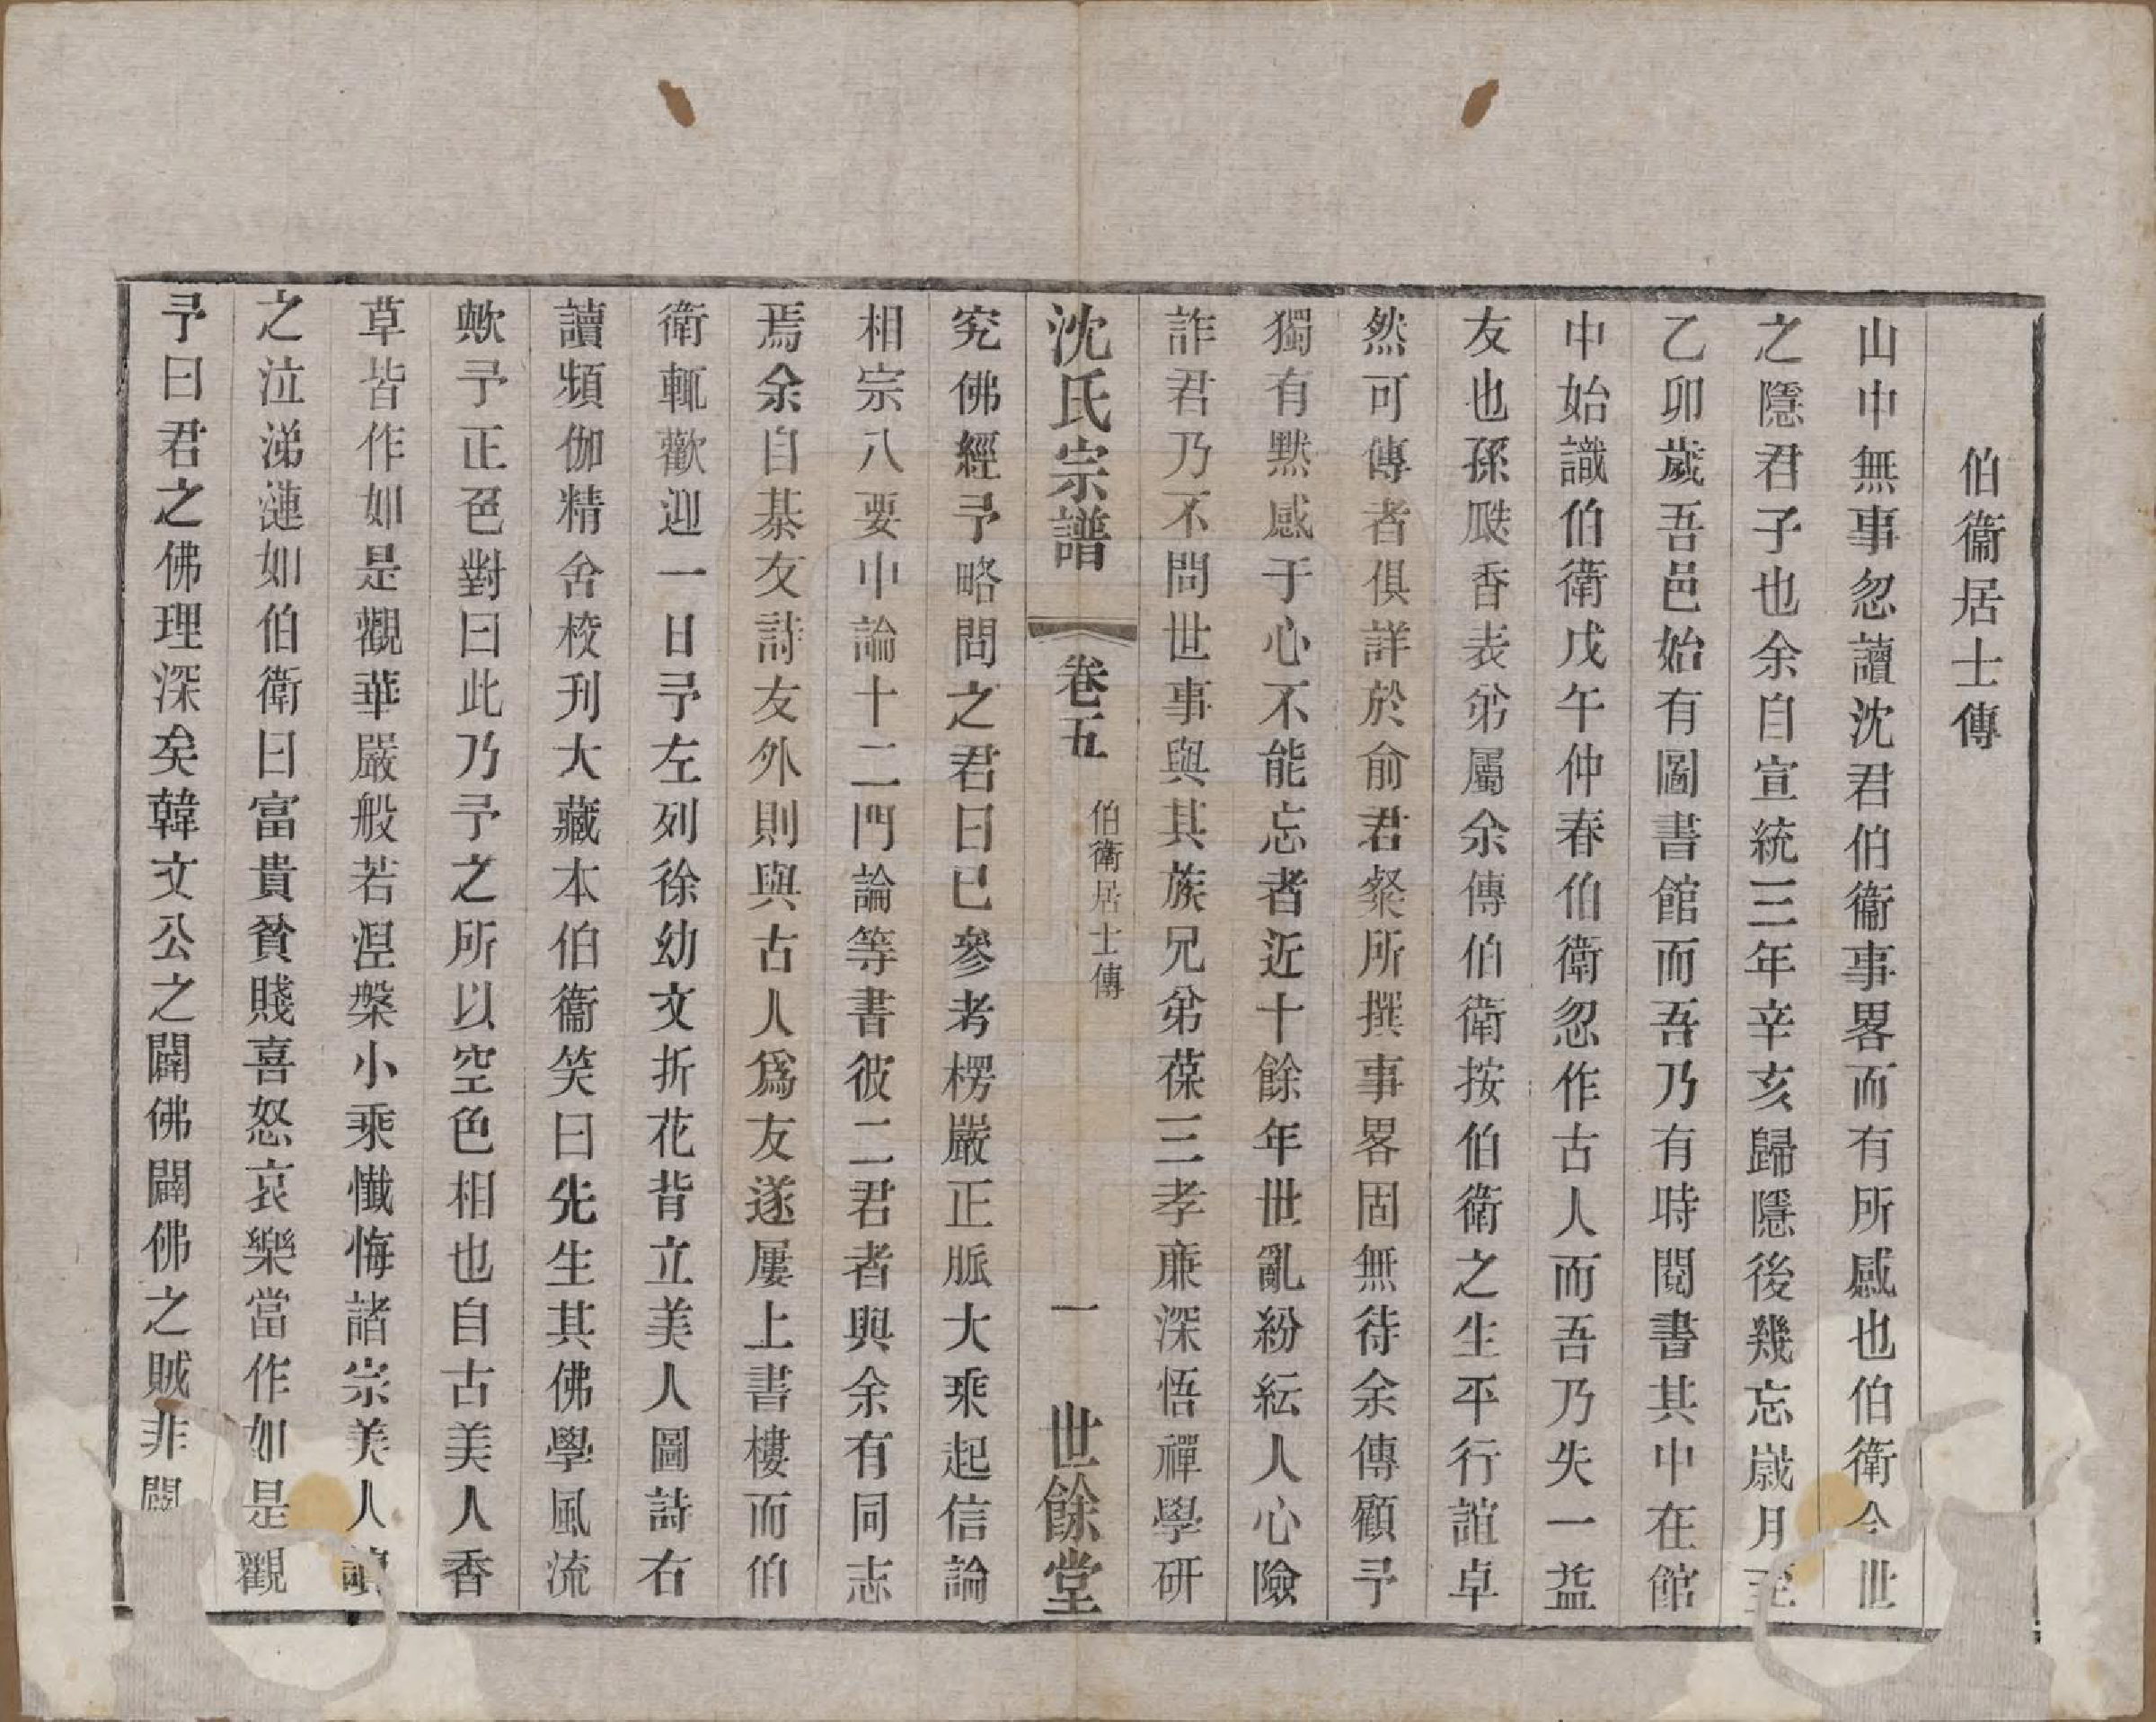 伯衞居士傳
山中無事忽讀沈君伯衞事畧而有所感也伯衛今世
之隱君子也余自宣統三年辛亥歸隱後幾忘歲月至
乙卯歲吾邑始有圖書館而吾乃有時閱書其中在館
中始識伯衛戊午仲春伯衛忽作古人而吾乃失一益
友也孫颷香表弟屬余傳伯衛按伯衛之生平行誼卓
然可傳者俱詳於俞君粲所撰事畧固無待余傳顧予
獨有黙感于心不能忘者近十餘年世亂紛紜人心險
詐君乃不問世事與其族兄弟葆三孝廉深悟禪學研
沈氏宗譜
卷五
伯衛居士傳
一
世餘堂
究佛經予略問之君曰已參考楞嚴正脈大乘起信論
相宗八要中論十二門論等書彼二君者與余有同志
焉余自棊友詩友外則與古人爲友遂屢上書樓而伯
衛輒歡迎一日予左列徐幼文折花背立美人圖詩右
讀頻伽精舍校刊大藏本伯衞笑曰先生其佛學風流
歟予正色對曰此乃予之所以空色相也自古美人香
草皆作如是觀華嚴般若湼槃小乘懺悔諸宗美人讀
之泣涕漣如伯衛曰富貴貧賤喜怒哀樂當作如是觀
予曰君之佛理深矣韓文公之闢佛闢佛之賊非闢